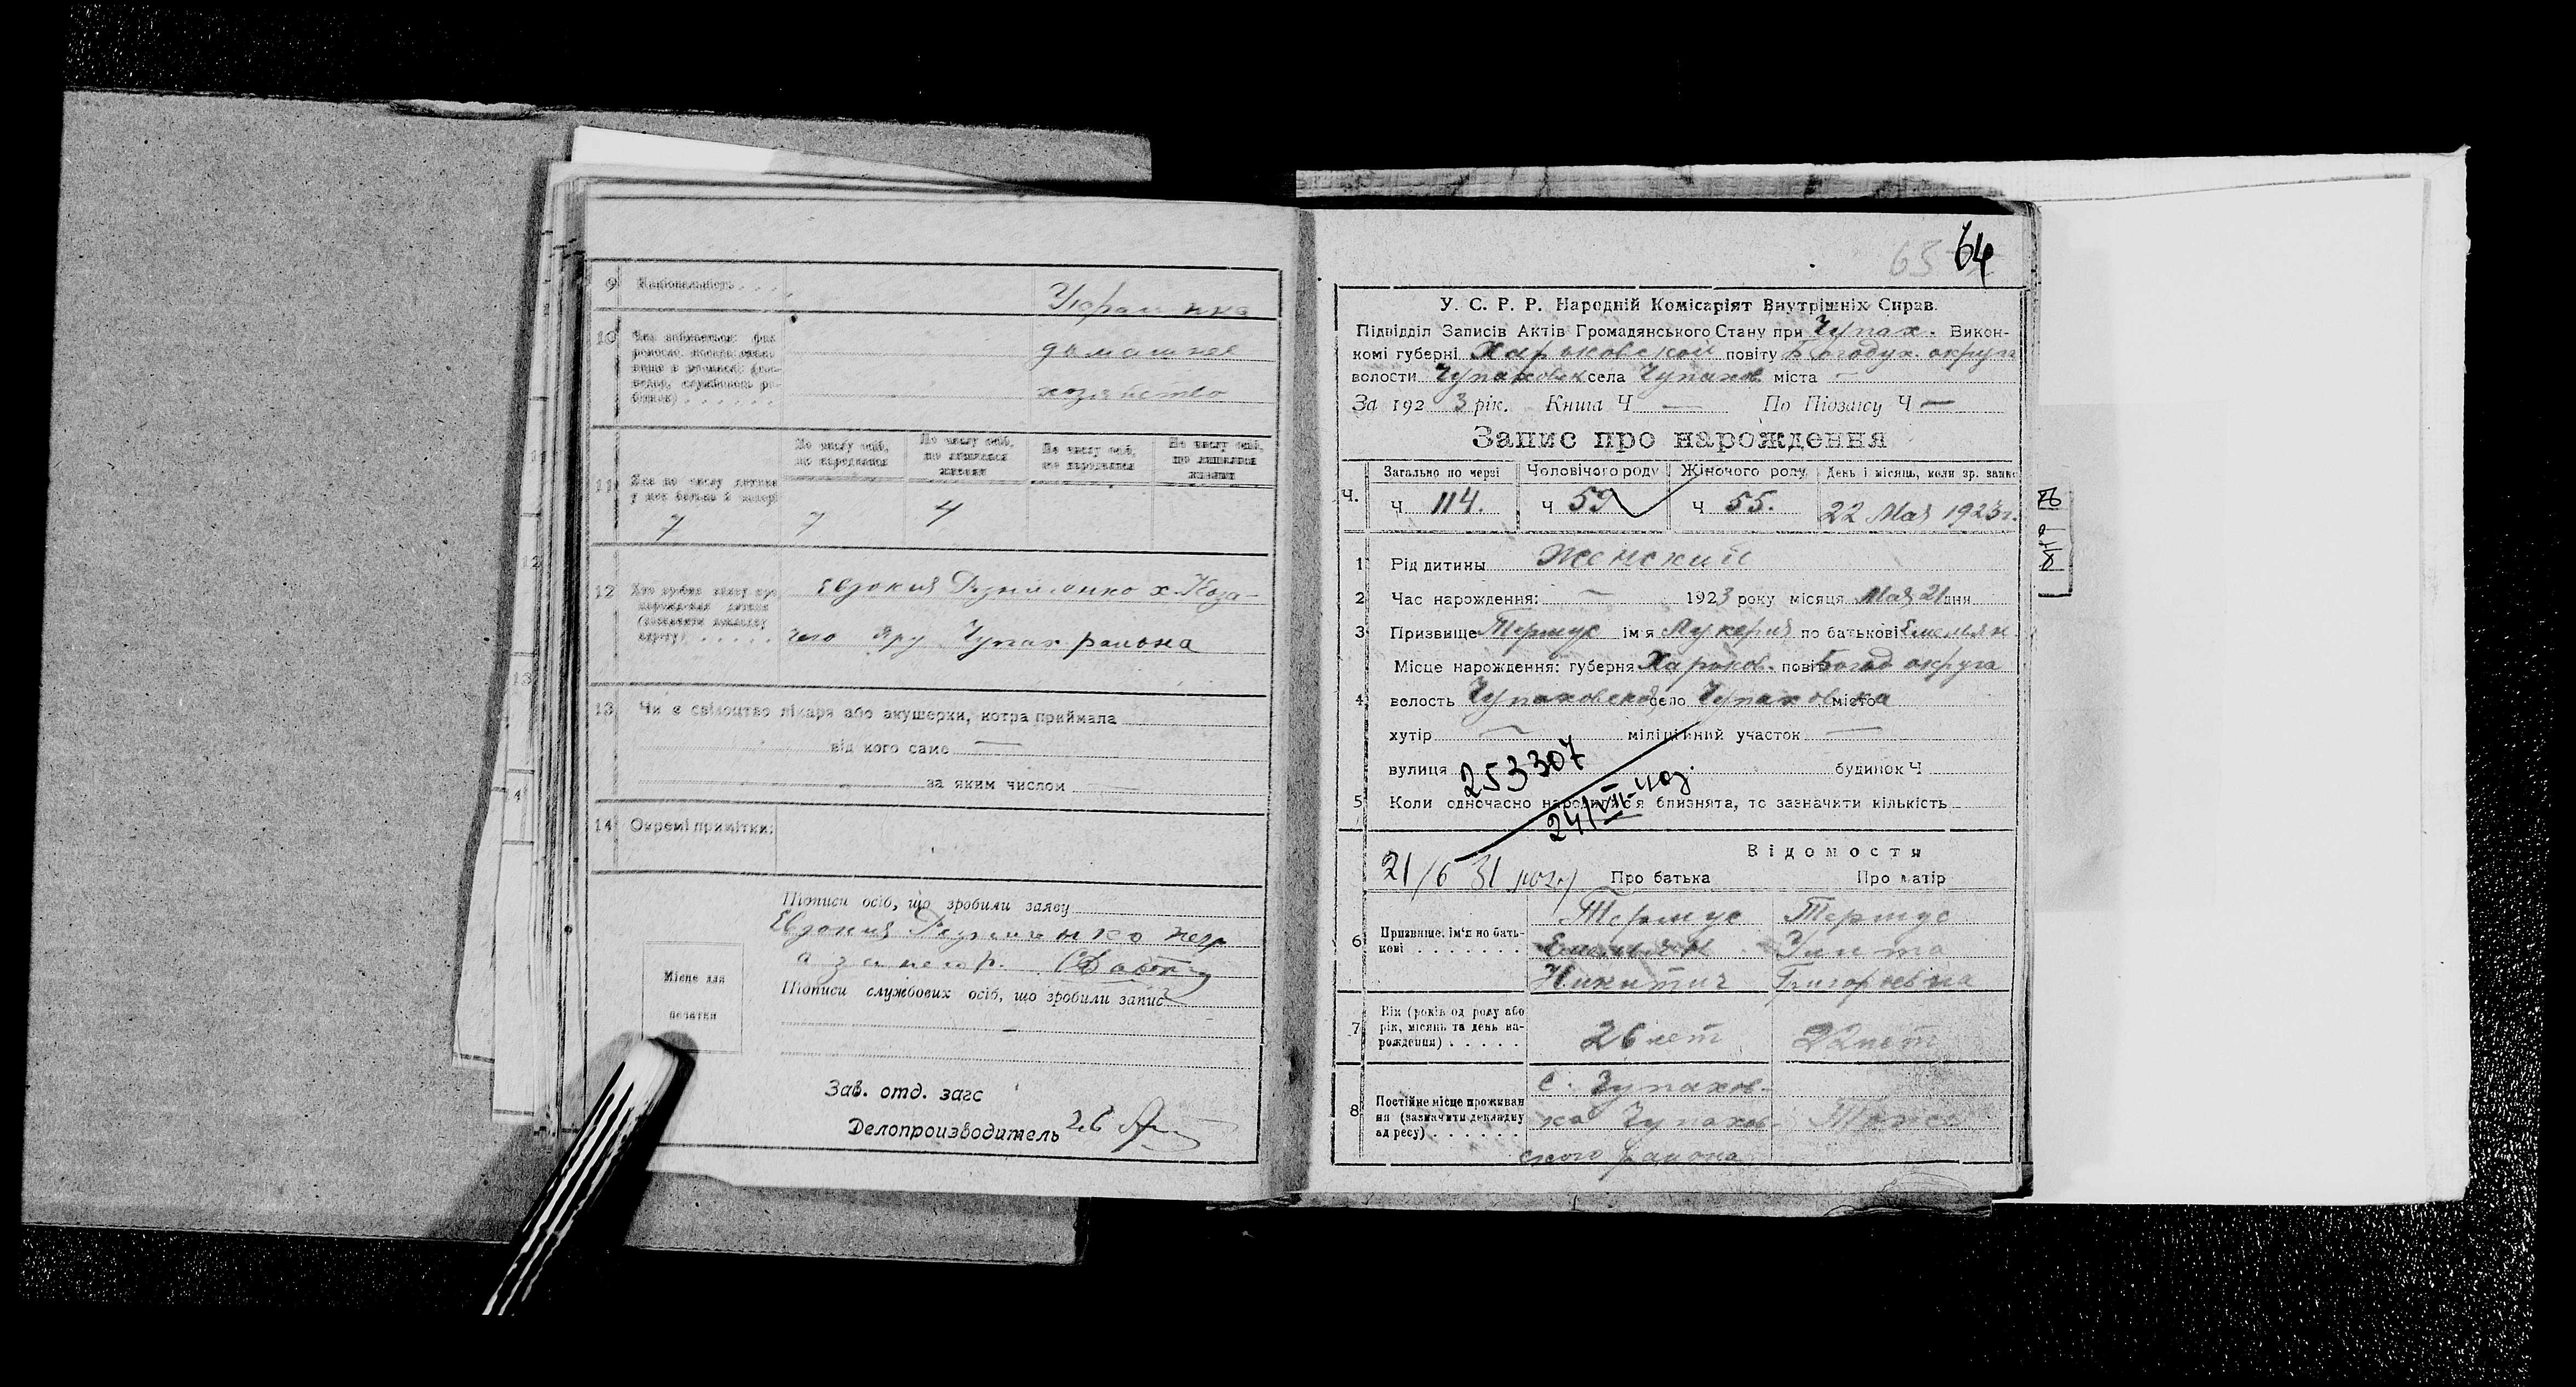 9 Національність . . .
Украинка
10 Чим займається: фах
ремесло, посада
домашнее
хозяйство
По числу осіб, що народилися
По числу осіб, що лишилися живими
По числу осіб, що народилися
По числу осіб, що лишилися живими
11 Яка по числу дитина у цеї батька й матері
7 7 4
12 Хто зробив заяву про народження дитини
Евдокия х. Коза-
чого Яру Чупах района
13 Чи є свідоцтво лікаря або акушерки, котра приймала
від кого саме —
за яким числом —
14 Окремі примітки:
Підписи осіб, що зробили заяву
Евдокия негр
а за негр.
Підписи службових осіб, що зробили запис
Місце для
печатки
Зав. отд. загс
Делопроизводитель
64
У. С. Р. Р. Народній Комісаріят Внутрішніх Справ.
Підвідділ Записів Актів Громадянського Стану при Чупах. Викон-
комі губерні Харьковской повіту Богодух. округи
волости Чупаховск села Чупахов міста —
За 1923 рік. Книга Ч — По Підзапису Ч —
Запис про нарождення
Загально по черзі Чоловічого роду Жіночого роду День і місяць, коли зр. запис
Ч. Ч 114. Ч 59 Ч 55. 22 Мая 1923 г.
1 Рід дитины Женский
2 Час нарождення: — 1923 року місяця Мая 21 дня
3 Призвище Термус ім'я Лукерия по батькові Емельян.
Місце нарождення: губерня Харьков. повіт Богод округа
4 волость Чупаховской село Чупаховка місто
хутір — міліційний участок —
вулиця будинок Ч
253307
24/VII-40г.
5 Коли одночасно народилися близнята, то зазначити кількість
Відомости
21/6 31
Про батька Про матір
6 Призвище, ім'я по бать-
кові . . . . . . .
Термус Термус
Емельян
Никитич Григорьевна
7 Вік (років од роду або
рік, місяць та день на-
рождення) . . . . .
26 лет 22 лет
8 Постійне місце проживан
ня (зазначити докладну
адресу) . . . . . .
с. Чупахов-
ка Чупахов- Тоже
ского района